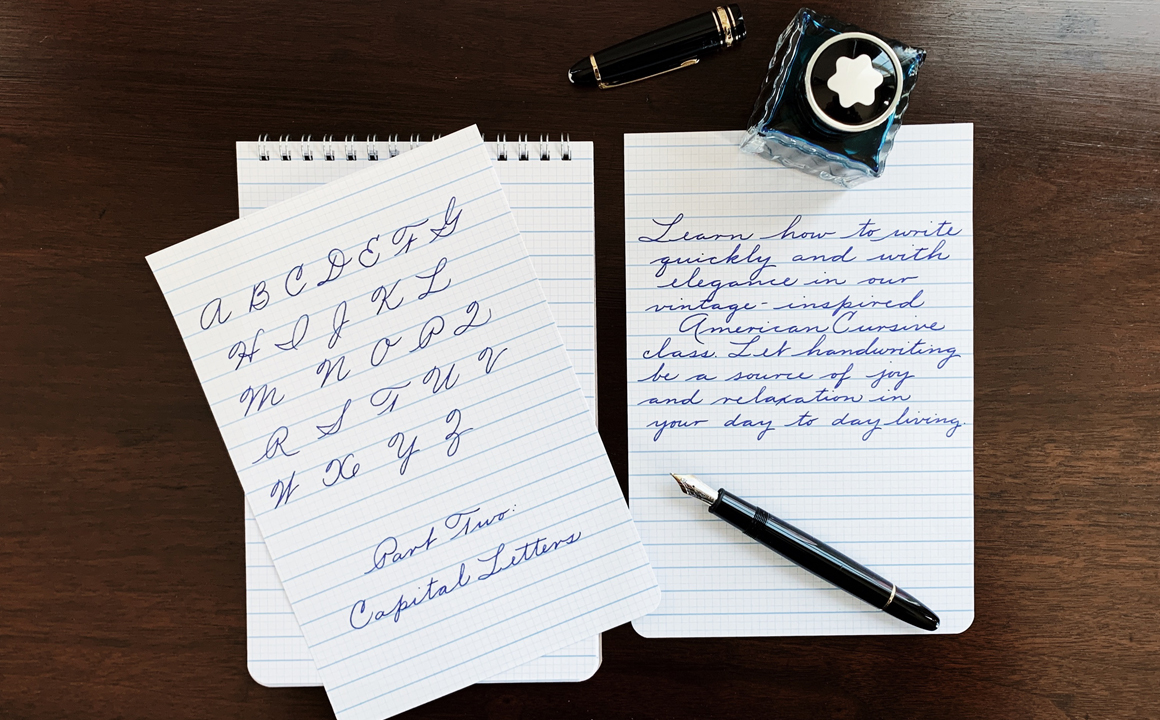 A B C D E F G
H I J K L
M N O P Q
R S T U V
W X Y Z
Part Two:
Capital Letters
Learn how to write
quickly and with
elegance in our
vintage-inspired
American Cursive
class. Let handwriting
be a source of joy
and relaxation in
your day to day living.